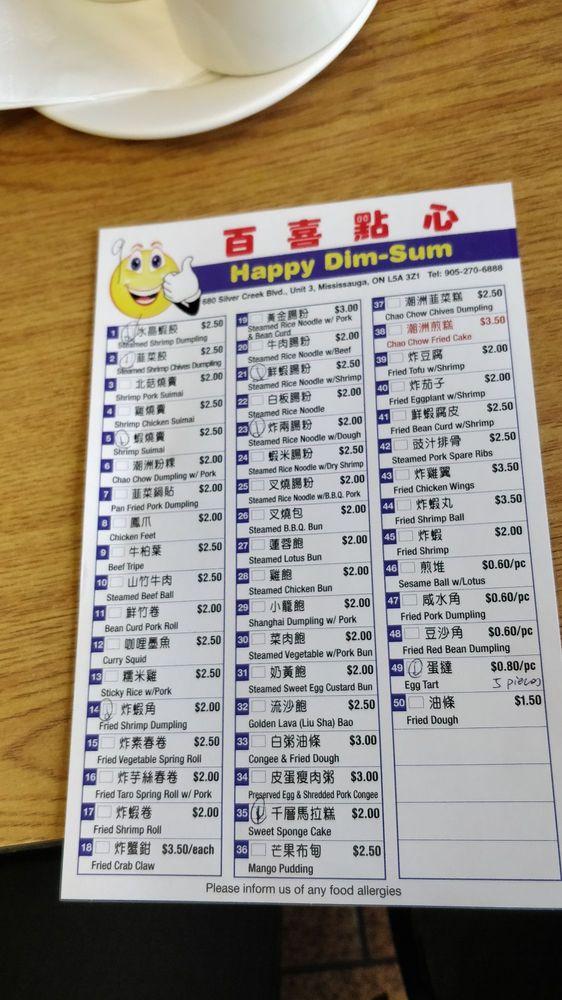 9
百喜點心
Happy Dim-Sum
680 Silver Creek Blvd., Unit 3, Mississauga, ON L5A 3Z1 Tel: 905-270-6888
1 1 水晶蝦餃 $2.50
Steamed Shrimp Dumpling
2 1 韮菜餃 $2.50
Steamed Shrimp Chives Dumpling
3 北菇燒賣 $2.00
Shrimp Pork Suimai
4 雞燒賣 $2.50
Shrimp Chicken Suimai
5 1 蝦燒賣 $2.50
Shrimp Suimai
6 潮洲粉粿 $2.00
Chao Chow Dumpling w/ Pork
7 韮菜鍋貼 $2.00
Pan Fried Pork Dumpling
8 鳳爪 $2.00
Chicken Feet
9 牛柏葉 $2.50
Beef Tripe
10 山竹牛肉 $2.50
Steamed Beef Ball
11 鮮竹卷 $2.00
Bean Curd Pork Roll
12 咖喱墨魚 $2.50
Curry Squid
13 糯米雞 $2.50
Sticky Rice w/Pork
14 1 炸蝦角 $2.00
Fried Shrimp Dumpling
15 炸素春卷 $2.50
Fried Vegetable Spring Roll
16 炸芋絲春卷 $2.00
Fried Taro Spring Roll w/ Pork
17 炸蝦卷 $2.00
Fried Shrimp Roll
18 炸蟹鉗 $3.50/each
Fried Crab Claw
19 黃金腸粉 $3.00
Steamed Rice Noodle w/ Pork
& Bean Curd
20 牛肉腸粉 $2.00
Steamed Rice Noodle w/Beef
21 1 鮮蝦腸粉 $2.50
Steamed Rice Noodle w/Shrimp
22 白板腸粉 $2.00
Steamed Rice Noodle
23 1 炸兩腸粉 $2.00
Steamed Rice Noodle w/Dough
24 蝦米腸粉 $2.50
Steamed Rice Noodle w/Dry Shrimp
25 叉燒腸粉 $2.00
Steamed Rice Noodle w/B.B.Q. Pork
26 叉燒包 $2.00
Steamed B.B.Q. Bun
27 蓮蓉飽 $2.00
Steamed Lotus Bun
28 雞飽 $2.00
Steamed Chicken Bun
29 小籠飽 $2.00
Shanghai Dumpling w/ Pork
30 菜肉飽 $2.00
Steamed Vegetable w/Pork Bun
31 奶黃飽 $2.00
Steamed Sweet Egg Custard Bun
32 流沙飽 $2.50
Golden Lava (Liu Sha) Bao
33 白粥油條 $3.00
Congee & Fried Dough
34 皮蛋瘦肉粥 $3.00
Preserved Egg & Shredded Pork Congee
35 1 千層馬拉糕 $2.00
Sweet Sponge Cake
36 芒果布甸 $2.50
Mango Pudding
37 潮洲韮菜糕 $2.50
Chao Chow Chives Dumpling
38 潮洲煎糕 $3.50
Chao Chow Fried Cake
39 炸豆腐 $2.00
Fried Tofu w/Shrimp
40 炸茄子 $2.00
Fried Eggplant w/Shrimp
41 鮮蝦腐皮 $2.50
Fried Bean Curd w/Shrimp
42 豉汁排骨 $2.50
Steamed Pork Spare Ribs
43 炸雞翼 $3.50
Fried Chicken Wings
44 炸蝦丸 $3.50
Fried Shrimp Ball
45 炸蝦 $2.00
Fried Shrimp
46 煎堆 $0.60/pc
Sesame Ball w/Lotus
47 咸水角 $0.60/pc
Fried Pork Dumpling
48 豆沙角 $0.60/pc
Fried Red Bean Dumpling
49 1 蛋撻 $0.80/pc
Egg Tart 5 pieces
50 油條 $1.50
Fried Dough
Please inform us of any food allergies